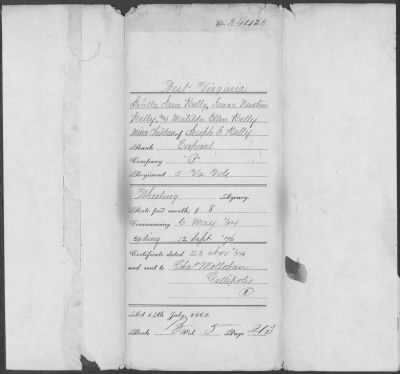 West Virginia
Jane Kelly, Isaac Newton
Kelly, and Matilda Ellen Kelly
minor Children of Joseph E. Kelly
Rank Corporal
Company "F"
Regiment 5 Va Vols
Wheeling Agency.
Rate per month, $ 8
Commencing 6 May '64
ending 12 Sept '76
Certificate dated 23 Nov '74
and sent to Chas Mollohan
Gallipolis
O
Act 14th July, 1862.
Book Vol. 5 Page 243